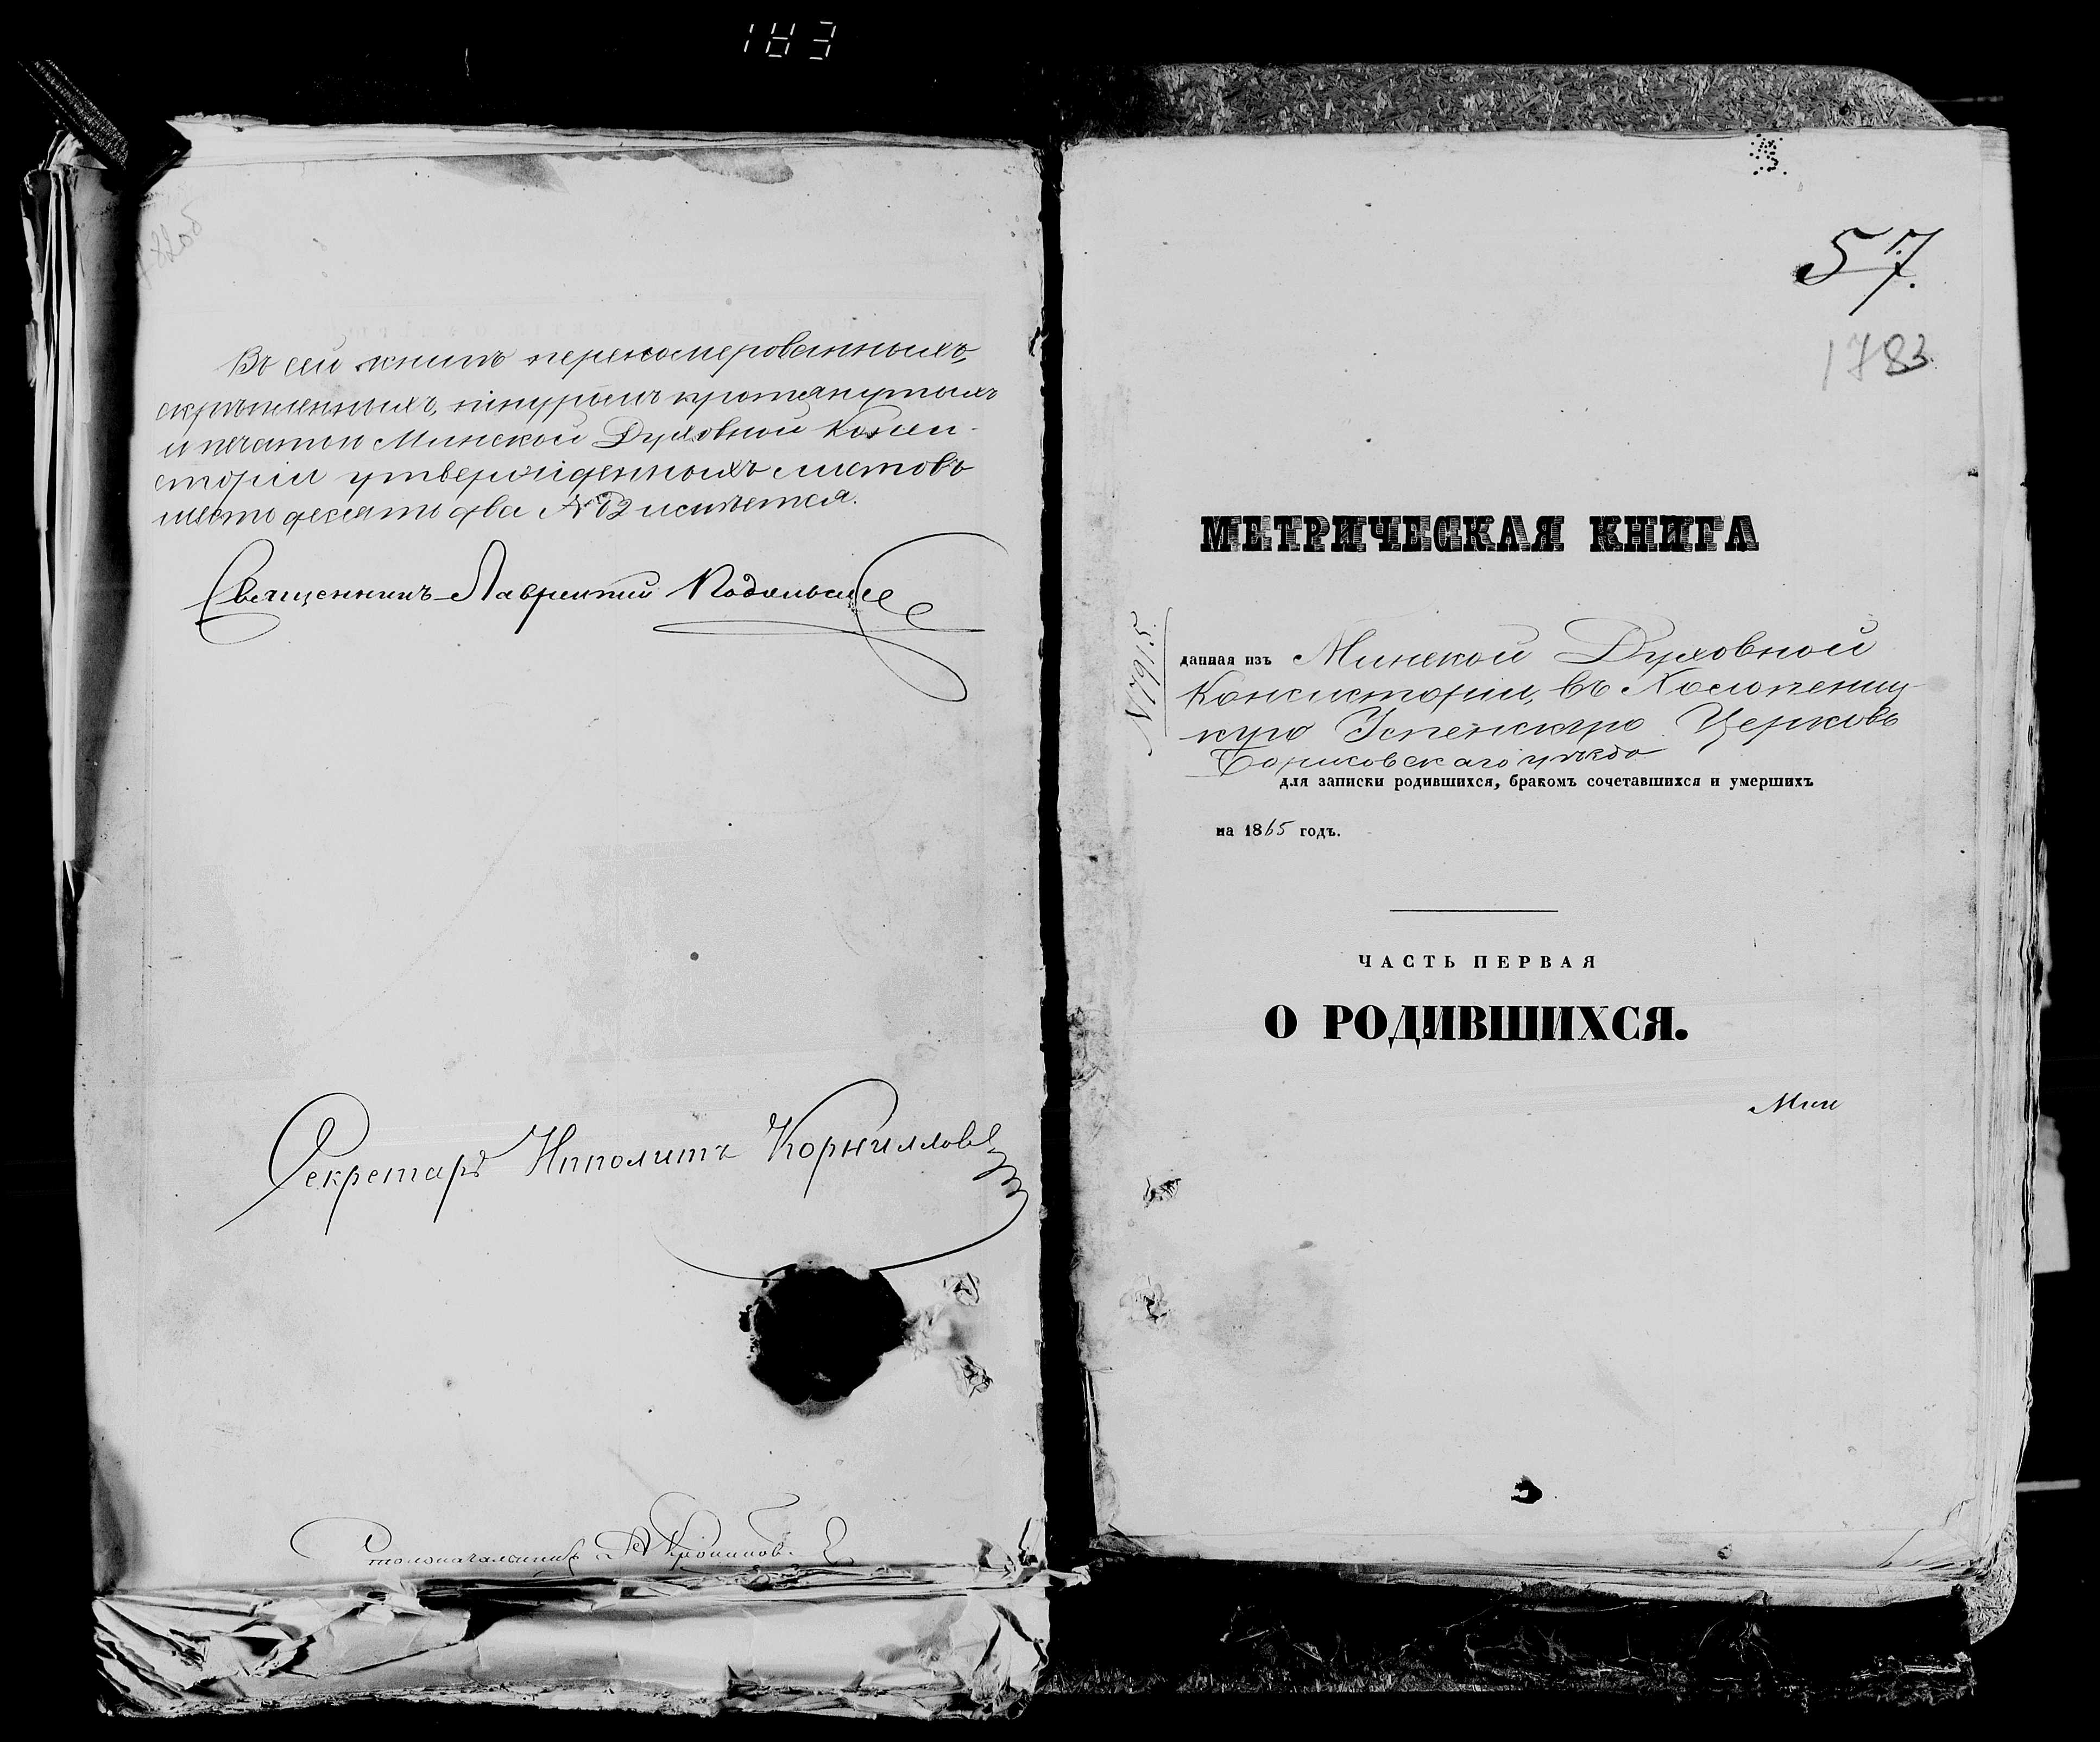 183
Въ сей книгѣ переномерованныхъ,
скрѣпленныхъ, шнуромъ протянутыхъ
и печатью Минской Духовной Конси-
сторіи утвержденныхъ листовъ
шестьдесятъ два № 62 исчитется.
Священникъ Лаврентій
Секретарь Ипполитъ Корниллов
Столоначальникъ
57.
1783
МЕТРИЧЕСКАЯ КНИГА
№ 7915.
данная изъ Минской Духовной
Консисторіи, въ Холопенич-
кую Успенскую Церковь
Борисовскаго уѣзда
для записки родившихся, бракомъ сочетавшихся и умершихъ
на 1865 годъ.
ЧАСТЬ ПЕРВАЯ
О РОДИВШИХСЯ.
Мин